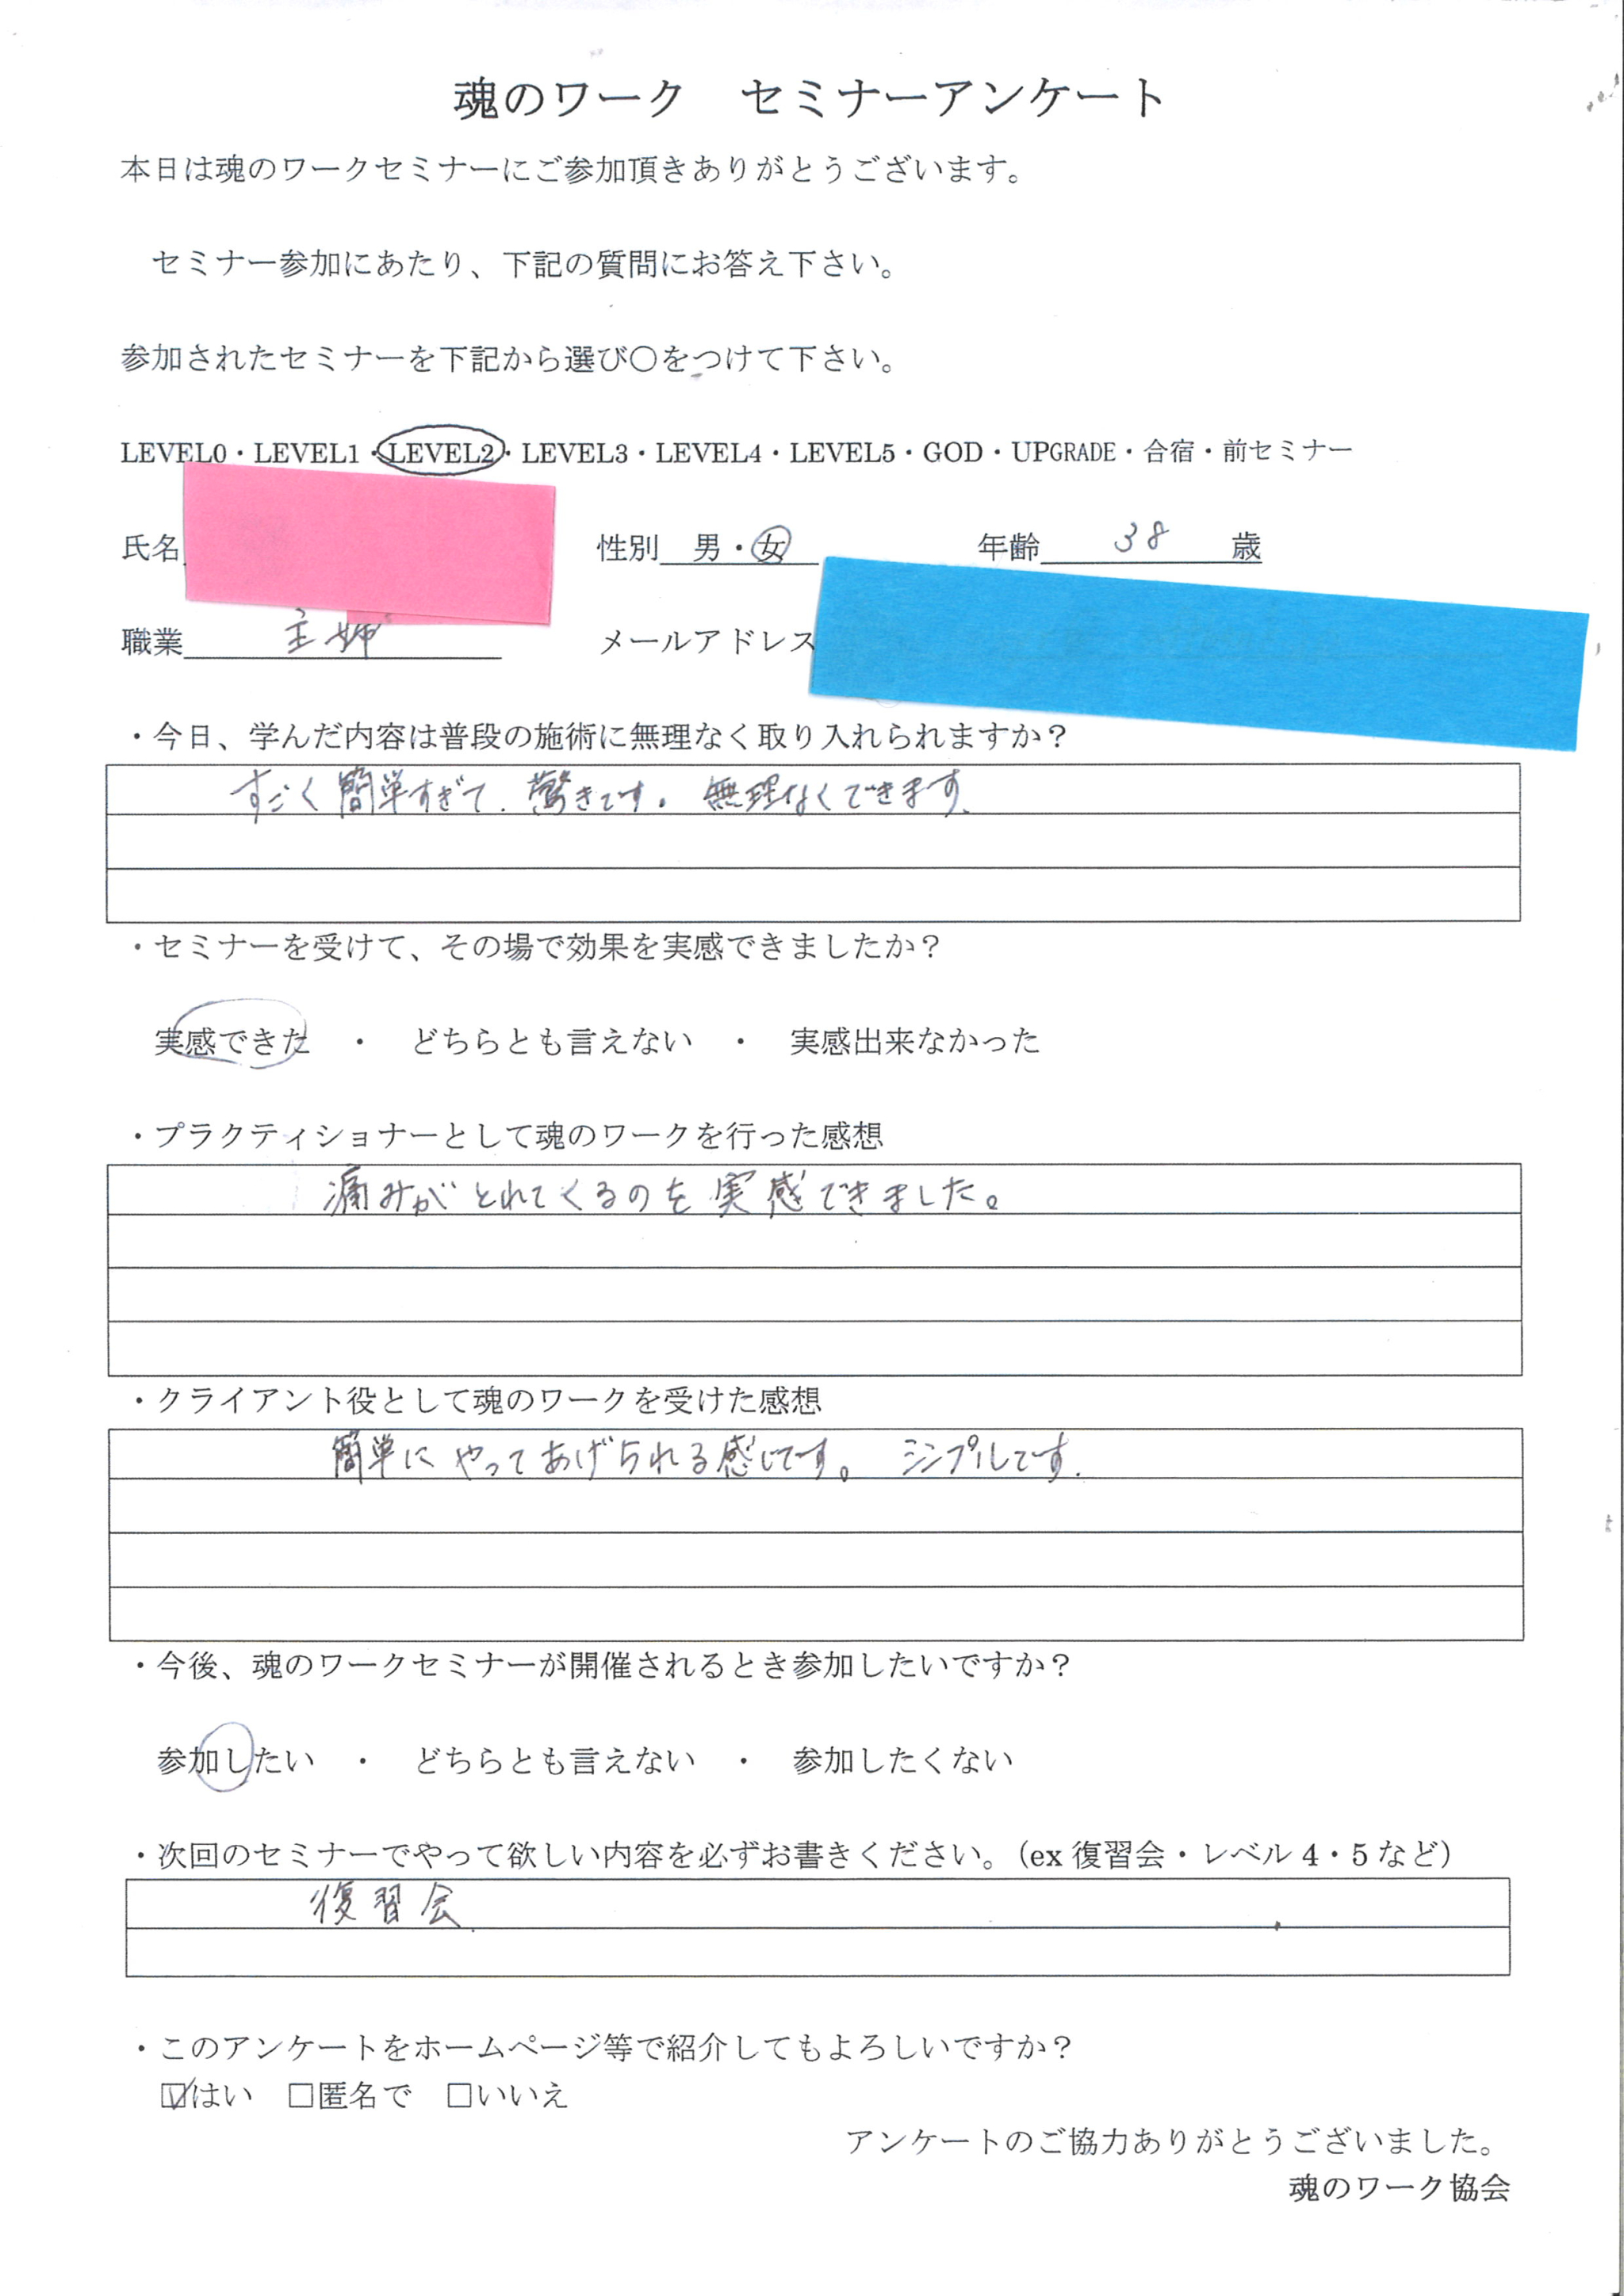 魂のワーク　セミナーアンケート
本日は魂のワークセミナーにご参加頂きありがとうございます。
セミナー参加にあたり、下記の質問にお答え下さい。
参加されたセミナーを下記から選び〇をつけて下さい。
LEVEL0・LEVEL1・LEVEL2・LEVEL3・LEVEL4・LEVEL5・GOD・UPGRADE・合宿・前セミナー
氏名　性別　男・女　年齢　38　歳
職業　主婦　メールアドレス
・今日、学んだ内容は普段の施術に無理なく取り入れられますか？
すごく簡単すぎて、驚きです。無理なくできます。
・セミナーを受けて、その場で効果を実感できましたか？
実感できた　・　どちらとも言えない　・　実感出来なかった
・プラクティショナーとして魂のワークを行った感想
痛みがとれてくるのを実感できました。
・クライアント役として魂のワークを受けた感想
簡単にやってあげられる感じです。シンプルです。
・今後、魂のワークセミナーが開催されるとき参加したいですか？
参加したい　・　どちらとも言えない　・　参加したくない
・次回のセミナーでやって欲しい内容を必ずお書きください。（ex 復習会・レベル 4・5 など）
復習会
・このアンケートをホームページ等で紹介してもよろしいですか？
☑はい　□匿名で　□いいえ
アンケートのご協力ありがとうございました。
魂のワーク協会